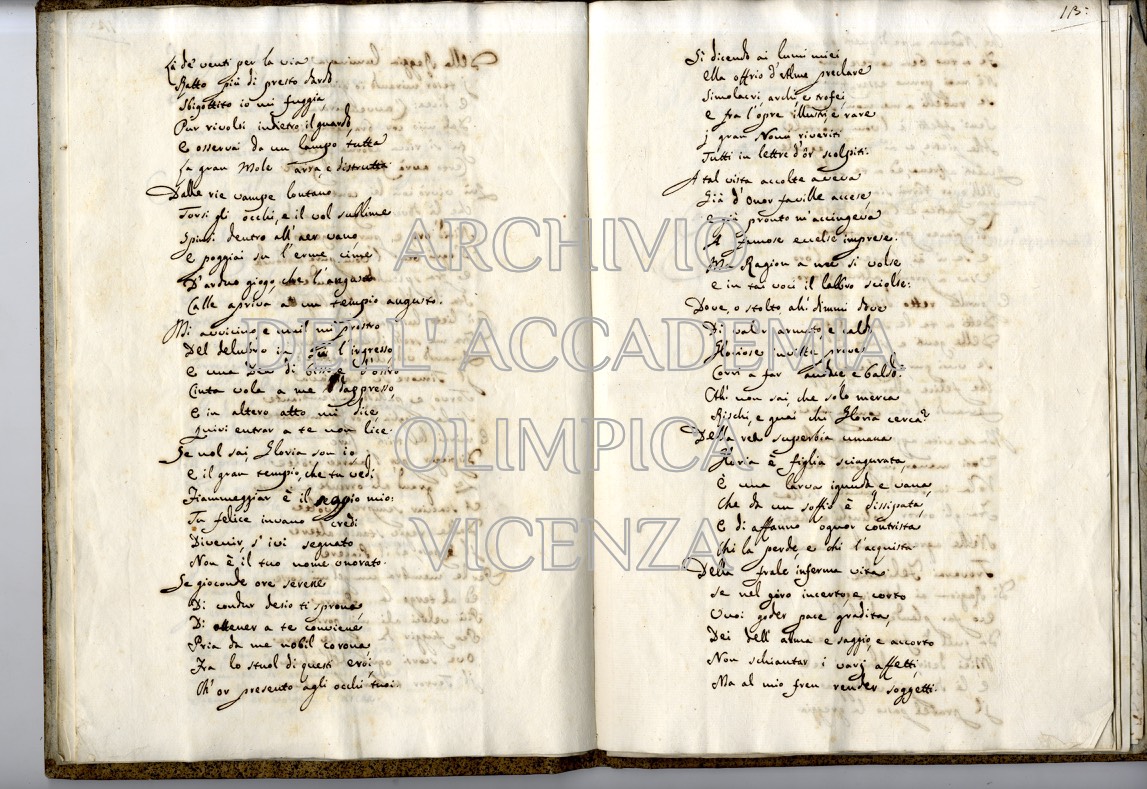 Là de' venti per la via
Ratto più di presto dardo
Sbigottito io mi fuggia,
Pur rivolsi indietro il guardo,
E osservai da un lampo tutta
La gran Mole arra, e distrutta
Dalle rie vampe lontano
Torsi gli occhi, e il vol sublime
Spinsi dentro all'aer vano,
E poggiai su l'erme cime
D'arduo giogo, che l'angusto
Calle apriva a un tempio augusto.
Mi avvicino, e mi prostro
Del delubro in su l'ingresso,
E una Dea di bisso e d'ostro
Cinta vola a me dappresso,
E in altero atto mi dice
Quivi entrar a te non lice.
Se nol sai, Gloria son io
E il gran tempio, che tu vedi
Fiammeggiar è il seggio mio:
Tu felice invano credi
Divenir, s'ivi segnato
Non è il tuo nome onorato.
Se gioconde ore serene
Di condur desio ti sprona,
Di ottener a te conviene
Pria da me nobil corona
Fra lo stuol di questi eroi,
Ch'or presento agli occhi tuoi.
113:
Sì dicendo ai lumi miei
Ella offrio d'Alme preclare
Simolacri, archi, e trofei,
E fra l'opre illustri, e rare
I gran Nomi riveriti
Tutti in lettre d'or scolpiti.
A tal vista accolte aveva
Già d'Onor faville accese,
E già pronto m'accingeva
A famose eccelse imprese.
Ma Ragion a me si volse
E in tai voci il labbro sciolse:
Dove, o stolto, ah! dimmi dove
Di valor armato, e caldo
Gloriose invitte prove
Corri a far audace e baldo?
Ah! non sai, che solo merca
Rischi, e guai chi Gloria cerca?
Della rea superbia umana
Gloria è figlia sciagurata,
E una larva ignuda e vana,
Che da un soffio è dissipata,
E di affanno ognor contrista
Chi la perde, e chi l'acquista.
Della frale inferma vita
Se nel giro incerto, e corto
Vuoi goder pace gradita,
Dei dell'alma e saggio, e accorto
Non schiantar i varj affetti,
Ma al mio fren render soggetti.
ARCHIVIO
DELL'ACCADEMIA
OLIMPICA
VICENZA